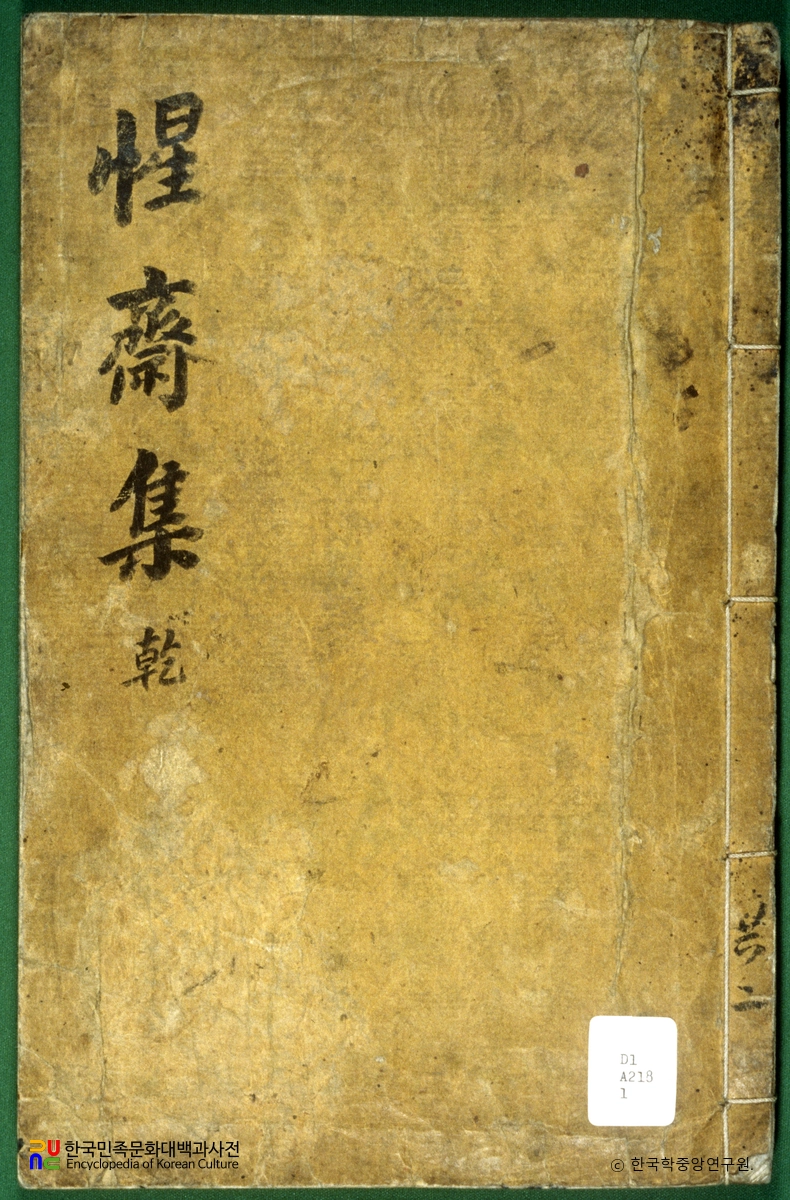 惺齋集 乾
共二
D1
A218
1
한국민족문화대백과사전
Encyclopedia of Korean Culture
ⓒ 한국학중앙연구원